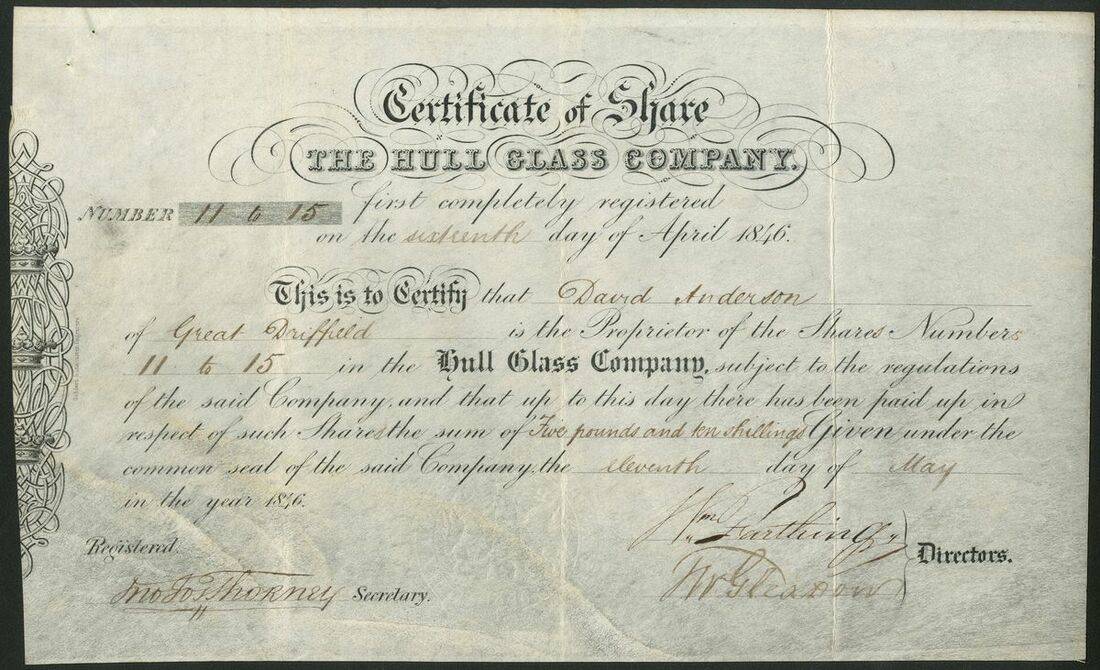 Certificate of Share
THE HULL GLASS COMPANY.
NUMBER 11 to 15 first completely registered
on the sixteenth day of April 1846.
This is to Certify that David Anderson
of Great Driffield is the Proprietor of the Shares Numbers
11 to 15 in the Hull Glass Company, subject to the regulations
of the said Company, and that up to this day there has been paid up in
respect of such Shares the sum of Five pounds and ten shillings Given under the
common seal of the said Company, the eleventh day of May
in the year 1846.
Farthing
Registered.
Directors.
Thorney Secretary.